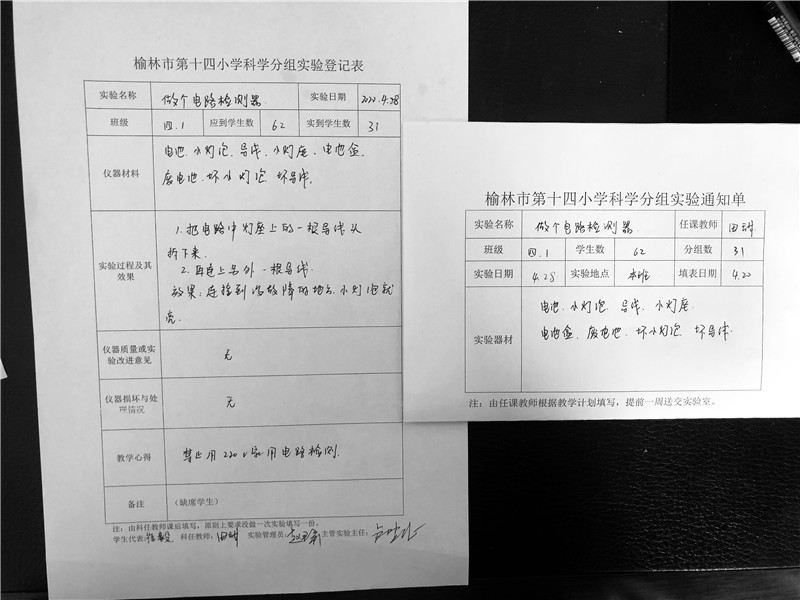 榆林市第十四小学科学分组实验登记表
实验名称 做个电路检测器 实验日期 2022.4.28
班级 四.1 应到学生数 62 实到学生数 31
仪器材料
电池、小灯泡、导线、小灯座、电池盒、
废电池、坏小灯泡、坏导线。
实验过程及其
效果
1.把电路中灯座上的一根导线头
拆下来.
2.再连上另外一根导线.
效果:连接到没故障的地方,小灯泡就
亮.
仪器质量或实
验改进意见
无
仪器损坏与处
理情况
无
教学心得 禁止用220v家用电路检测.
备注 (缺席学生)
注:由科任教师课后填写,原则上要求没做一次实验填写一份。
学生代表: 科任教师: 实验管理员: 主管实验主任:
榆林市第十四小学科学分组实验通知单
实验名称 做个电路检测器 任课教师
班级 四.1 学生数 62 分组数 31
实验日期 4.28 实验地点 本班 填表日期 4.20
实验器材
电池、小灯泡、导线、小灯座
电池盒、废电池、坏小灯泡、坏导线.
注:由任课教师根据教学计划填写,提前一周送交实验室。